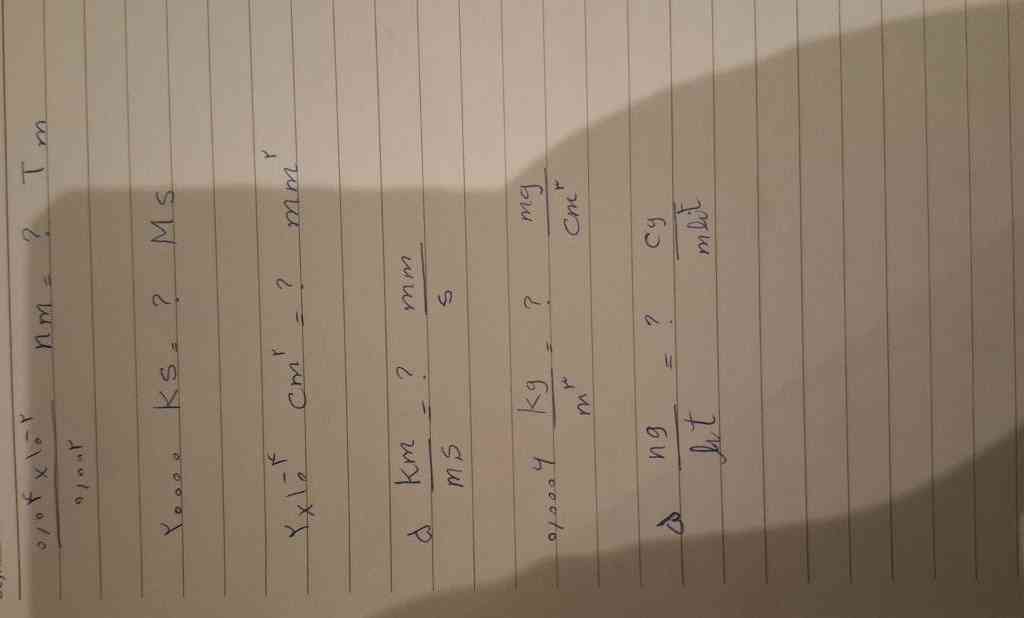 ۰/۰۴ × ۱۰⁻۲ / ۰/۰۰۲ nm = ? Tm
۲۰۰۰۰ Ks = ? Ms
۲ × ۱۰⁻۴ cm۲ = ? mm۲
۵ km/ms = ? mm/s
۰/۰۰۰۶ kg/m۳ = ? mg/cm۳
۵ ng/lit = ? cg/mlit